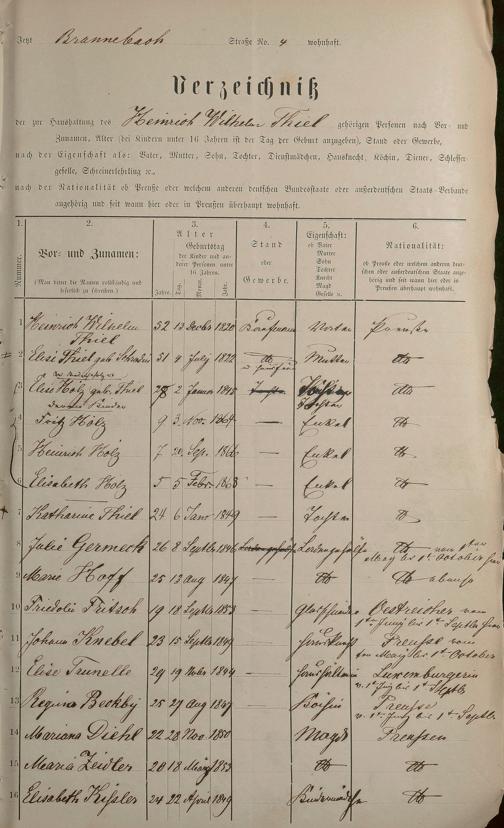 Jetzt Brannebach Straße No. 4 wohnhaft.
Verzeichniß
der zur Haushaltung des Heinrich Wilhelm Thiel gehörigen Personen nach Vor- und
Zunamen, Alter (bei Kindern unter 16 Jahren ist der Tag der Geburt anzugeben), Stand oder Gewerbe,
nach der Eigenschaft als: Vater, Mutter, Sohn, Tochter, Dienstmädchen, Hausknecht, Köchin, Diener, Schlosser
geselle, Schreinerlehrling ꝛc.,
nach der Nationalität ob Preuße oder welchem anderen deutschen Bundesstaate oder außerdeutschen Staats-Verbande
angehörig und seit wann hier oder in Preußen überhaupt wohnhaft.
1. 2. 3. 4. 5. 6.
Nummer.
Vor- und Zunamen:
(Man bittet die Namen vollständig und leserlich zu schreiben.)
Alter
Geburtstag
der Kinder und anderer Personen unter 16 Jahren.
Jahre. Tag. Monat. Jahr.
Stand
oder
Gewerbe.
Eigenschaft:
ob Vater
Mutter
Sohn
Tochter
Knecht
Magd
Geselle ꝛc.
Nationalität:
ob Preuße oder welchem anderen deutschen oder außerdeutschen Staate angehörig und seit wann hier oder in Preußen überhaupt wohnhaft.
1 Heinrich Wilhelm Thiel 52 13 Decbr 1820 Kaufmann Vater Preuße
2 Elise Thiel geb. 51 9 July 1822 Mutter dto
3 Elise Holz geb. Thiel 2 Januar Tochter dto
4 Fritz Holz 9 3 Nov. 1864 — Enkel dto
5 Heinrich Holz 7 20 Sep. 1866 — Enkel dto
6 Elisabeth Holz 5 5 Febr. 1868 — Enkel dto
7 Katharine Thiel 24 6 Janr 1849 — Tochter dto
8 Julie Germeck 26 8 Septbr 1846 Ladengehülfe dto von 1ten May bis 1t October hier
9 Marie Hopf 25 13 Aug 1847 — dto dto ebenso
10 Fridolin Fritsch 19 18 Septbr 1853 — Oestreicher vom 1ten Juny bis 1t Septbr hier
11 Johann Knebel 23 15 Septbr 1849 — Hausknecht Preusse vom 1ten May bis 1t October
12 Elise Trunelle 29 19 Nobr 1844 — Haushälterin Luxemburgerin v. 1t Juny bis 1t Septbr
13 Regina Beckby 25 27 Aug 1847 — Köchin Preusse v. 1t Juny bis 1t Septbr
14 Mariana Diehl 22 28 Nov. 1850 — Magd Preussen
15 Maria Zeidler 20 18 März 1853 dto dto
16 Elisabeth Kissler 24 22 April 1849 dto